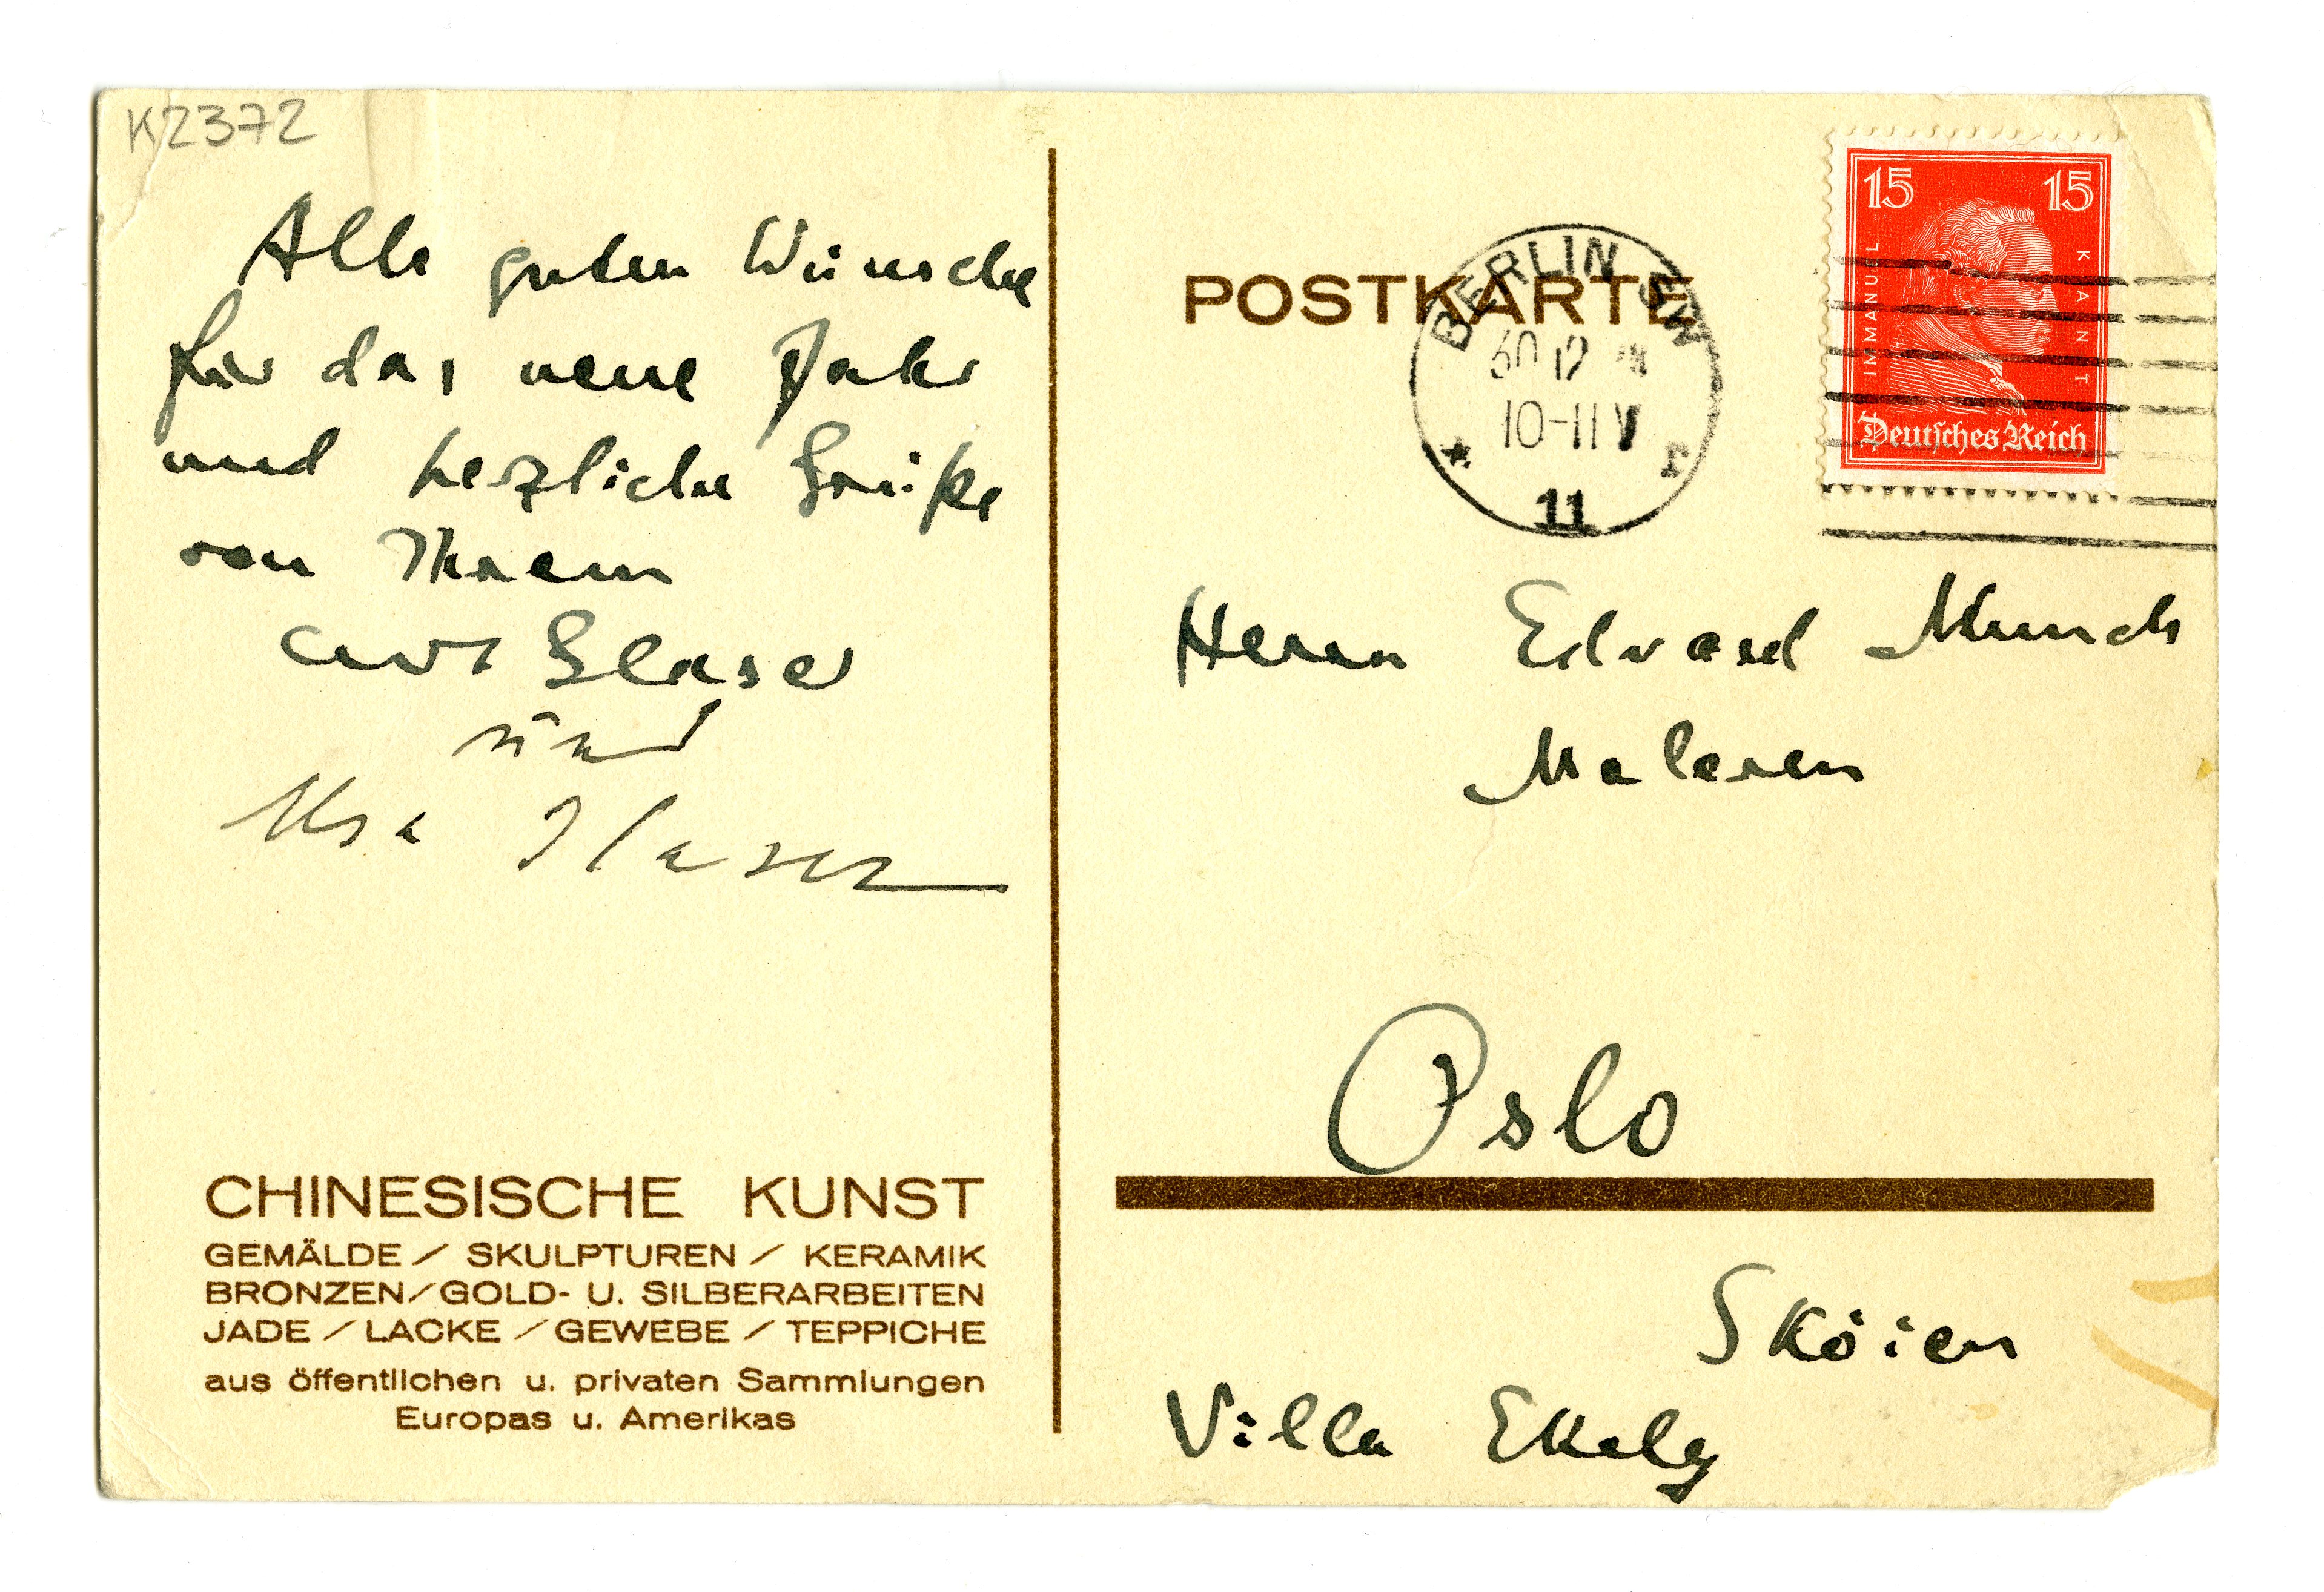 K2372
Alle guten Wünsche
für das neue Jahr
und herzliche Grüße
von Ihrem
Curt Glaser
und
Elsa Glaser
CHINESISCHE KUNST
GEMÄLDE / SKULPTUREN / KERAMIK
BRONZEN / GOLD- U. SILBERARBEITEN
JADE / LACKE / GEWEBE / TEPPICHE
aus öffentlichen u. privaten Sammlungen
Europas u. Amerikas
POSTKARTE
BERLIN SW
30 12
10-11 V
* 11
15 15
IMMANUEL KANT
Deutsches Reich
Herrn Edvard Munch
Maleren
Oslo
Sköien
Villa Ekely